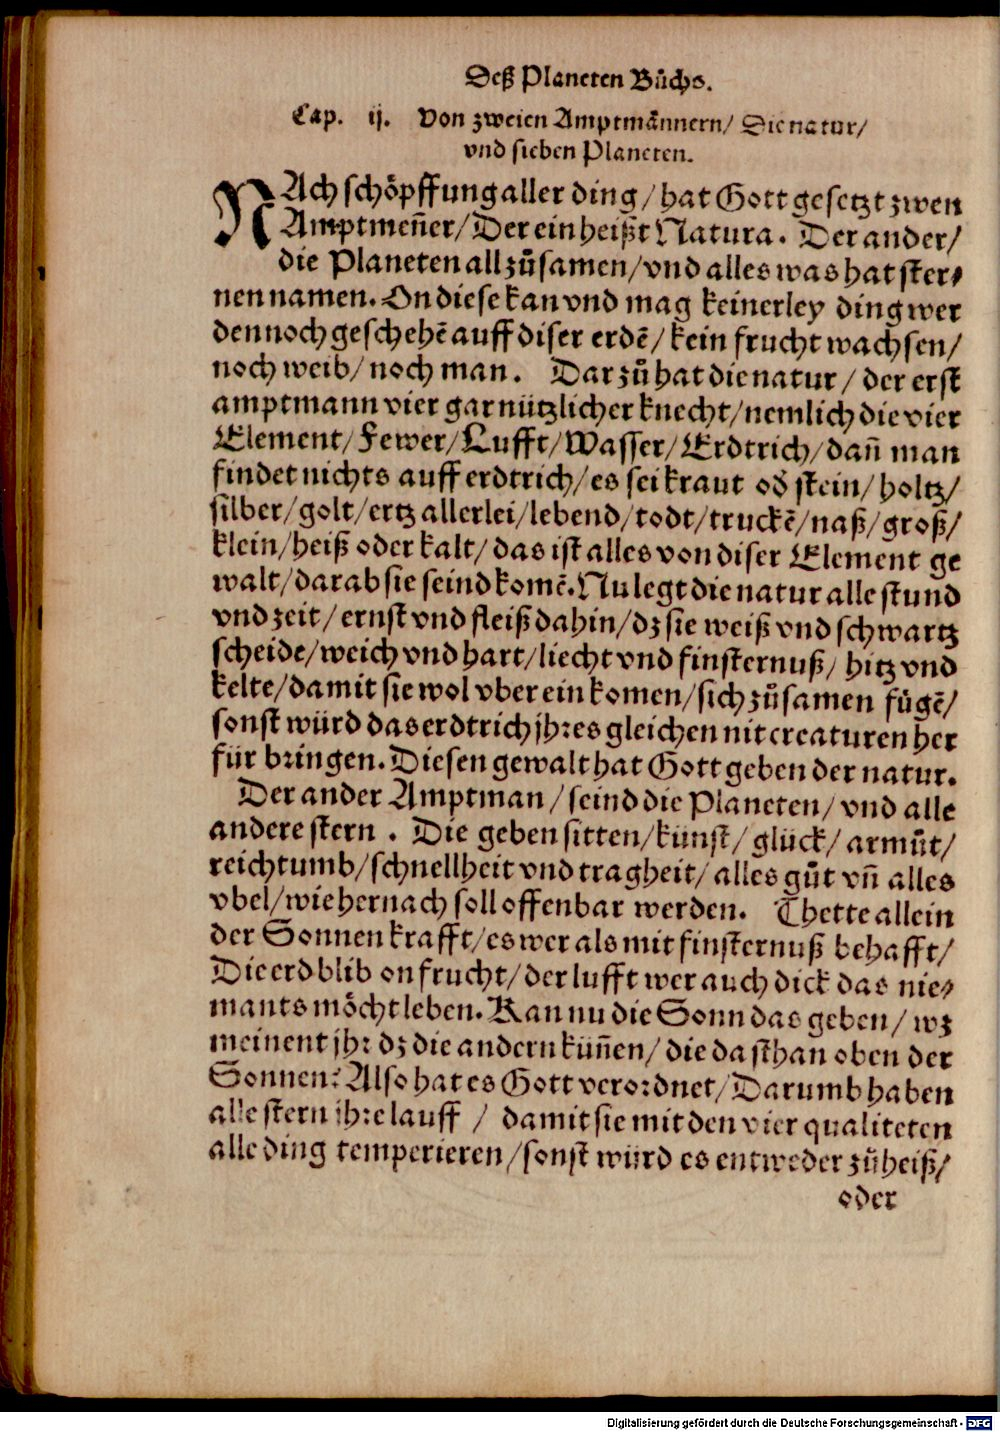 Deß Planeten Bůchs.
Cap. ij. Von zweien Amptmännern/ Die natur/
vnd sieben Planeten.
NAch schöpffung aller ding/ hat Gott gesetzt zwen
Amptmen̄er/ Der ein heißt Natura. Der ander/
die Planeten all zůsamen/ vnd alles was hat ster⸗
nen namen. On diese kan vnd mag keinerley ding wer
den noch geschehē auff diser erdē/ kein frucht wachsen/
noch weib/ noch man. Dar zů hat die natur/ der erst
amptmann vier gar nützlicher knecht/ nemlich die vier
Element/ Fewer/ Lufft/ Wasser/ Erdtrich/ dan̄ man
findet nichts auff erdtrich/ es sei kraut od̕ stein/ holtz/
silber/ golt/ ertz allerlei/ lebend/ todt/ truckē/ naß/ groß/
klein/ heiß oder kalt/ das ist alles von diser Element ge
walt/ darab sie seind komē. Nu legt die natur alle stund
vnd zeit/ ernst vnd fleiß dahin/ dz sie weiß vnd schwartz
scheide/ weich vnd hart/ liecht vnd finsternuß/ hitz vnd
kelte/ damit sie wol vber ein komen/ sich zůsamen fügē/
sonst würd das erdtrich jhres gleichen nit creaturen her
für bringen. Diesen gewalt hat Gott geben der natur.
Der ander Amptman/ seind die Planeten/ vnd alle
andere stern. Die geben sitten/ künst/ glück/ armůt/
reichtumb/ schnellheit vnd tragheit/ alles gůt vn̄ alles
vbel/ wie hernach soll offenbar werden. Thette allein
der Sonnen krafft/ es wer als mit finsternuß behafft/
Die erd blib on frucht/ der lufft wer auch dick das nie⸗
mants möcht leben. Kan nu die Sonn das geben/ wz
meinent jhr dz die andern kün̄en/ die da sthan oben der
Sonnen? Also hat es Gott verordnet/ Darumb haben
alle stern jhre lauff/ damit sie mit den vier qualiteten
alle ding temperieren/ sonst würd es entweder zů heiß/
oder
Digitalisierung gefördert durch die Deutsche Forschungsgemeinschaft - DFG